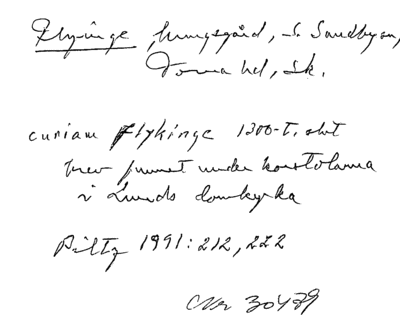 Flyinge kungsgård, S. Sandbysn,
Torna hd, Sk.
curiam Flykinge 1300-t. slut
brev funnet under korstolarna
i Lunds domkyrka
Piltz 1991: 212, 222
CNr 30479